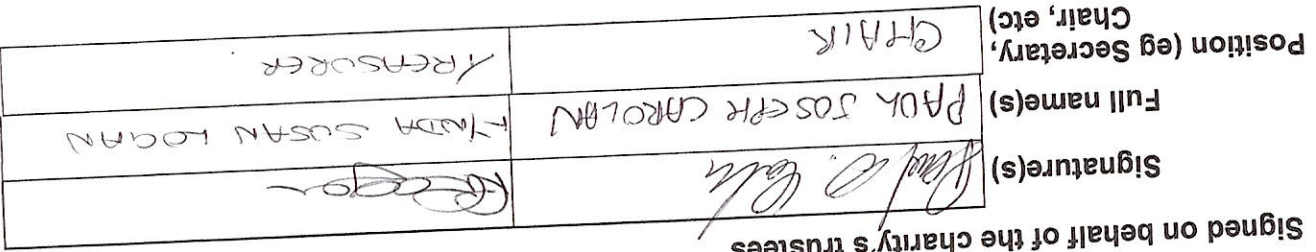 Signed on behalf of the charity's trustees
Signature(s)
Full name(s) PAUL JOSEPH CAROLAN LYNDA SUSAN LOGAN
Position (eg Secretary, CHAIR TREASURER
Chair, etc)